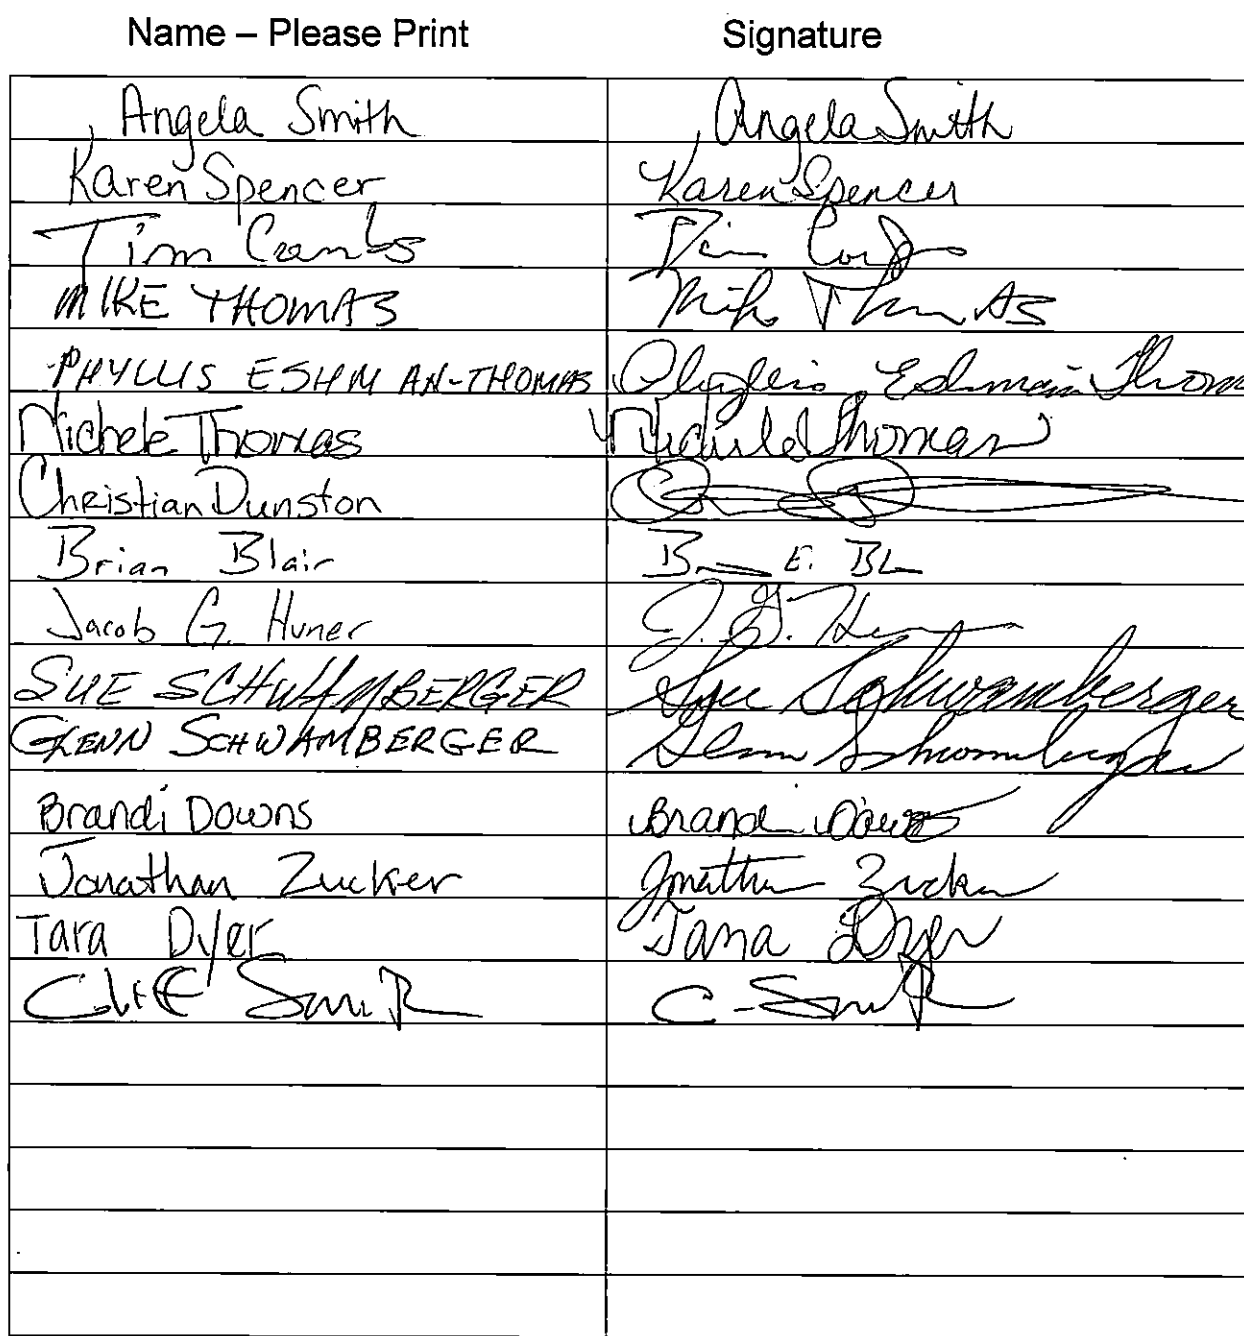 Name – Please Print Signature
Angela Smith Angela Smith
Karen Spencer Karen Spencer
Tim Tim
MIKE THOMAS Mike Thomas
PHYLLIS ESHMAN-THOMAS Phyllis Eshman Thom
Michele Thomas Michele Thomas
Christian Dunston
Brian Blair B E. Bl
Jacob G. Huner J. G. Hun
SUE SCHWAMBERGER Sue Schwamberger
GLENN SCHWAMBERGER Glenn Schwamberger
Brandi Downs Brandi Downs
Jonathan Zucker Jonathan Zucker
Tara Dyer Tara Dyer
Cliff Smith C Smith